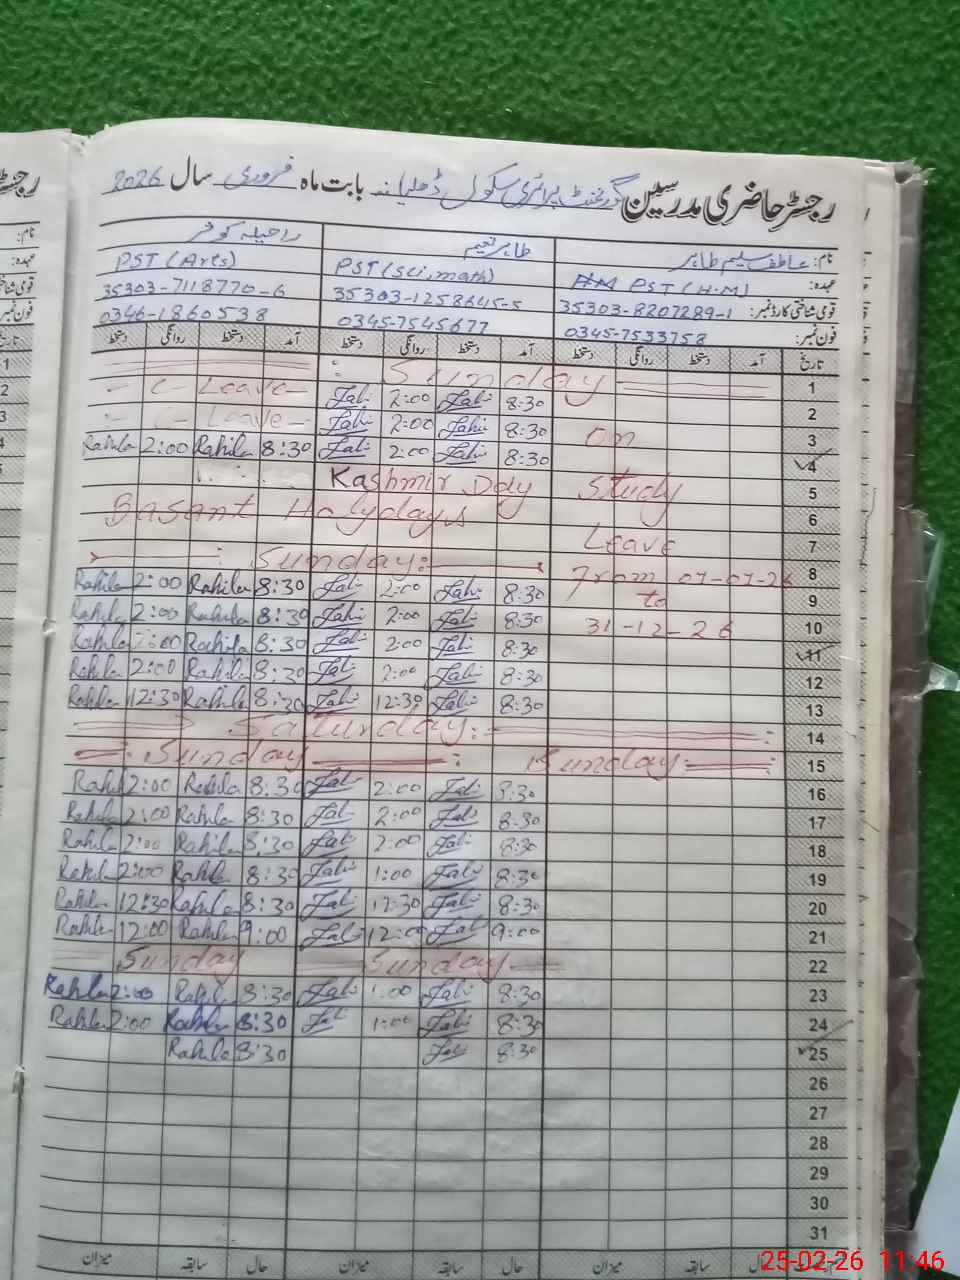 رجسٹر حاضری مدرسین گورنمنٹ پرائمری سکول ڈھلیانہ بابت ماہ فروری سال 2026
نام: عاطف سلیم طاہر طاہر نعیم راحیلہ کوثر
عہدہ: PST (H.M) PST (Sci, math) PST (Arts)
قومی شناختی کارڈ نمبر: 35303-8207289-1 35303-1258645-5 35303-7118770-6
فون نمبر: 0345-7533758 0345-7545677 0346-1860538
تاریخ آمد دستخط روانگی دستخط آمد دستخط روانگی دستخط آمد دستخط روانگی دستخط
1 Sunday
2 8:30 2:00 C-Leave
3 On 8:30 2:00 C-Leave
4 8:30 2:00 8:30 Rahila 2:00 Rahila
5 Study Kashmir Day
6 Basant Holydays
7 Leave
8 From 07-07-26 Sunday
9 to 8:30 2:00 8:30 Rahila 2:00 Rahila
10 31-12-26 8:30 2:00 8:30 Rahila 2:00 Rahila
11 8:30 2:00 8:30 Rahila 2:00 Rahila
12 8:30 2:00 8:30 Rahila 2:00 Rahila
13 8:30 12:30 8:30 Rahila 12:30 Rahila
14 Saturday
15 Sunday Sunday
16 8:30 2:00 8:30 Rahila 2:00 Rahila
17 8:30 2:00 8:30 Rahila 2:00 Rahila
18 8:30 2:00 8:30 Rahila 2:00 Rahila
19 8:30 1:00 8:30 Rahila 2:00 Rahila
20 8:30 12:30 8:30 Rahila 12:30 Rahila
21 9:00 12:00 9:00 Rahila 12:00 Rahila
22 Sunday Sunday
23 8:30 1:00 8:30 Rahila 2:00 Rahila
24 8:30 1:00 8:30 Rahila 2:00 Rahila
25 8:30 8:30 Rahila
26
27
28
29
30
31
حال سابقہ میزان حال سابقہ میزان
25-02-26 11:46